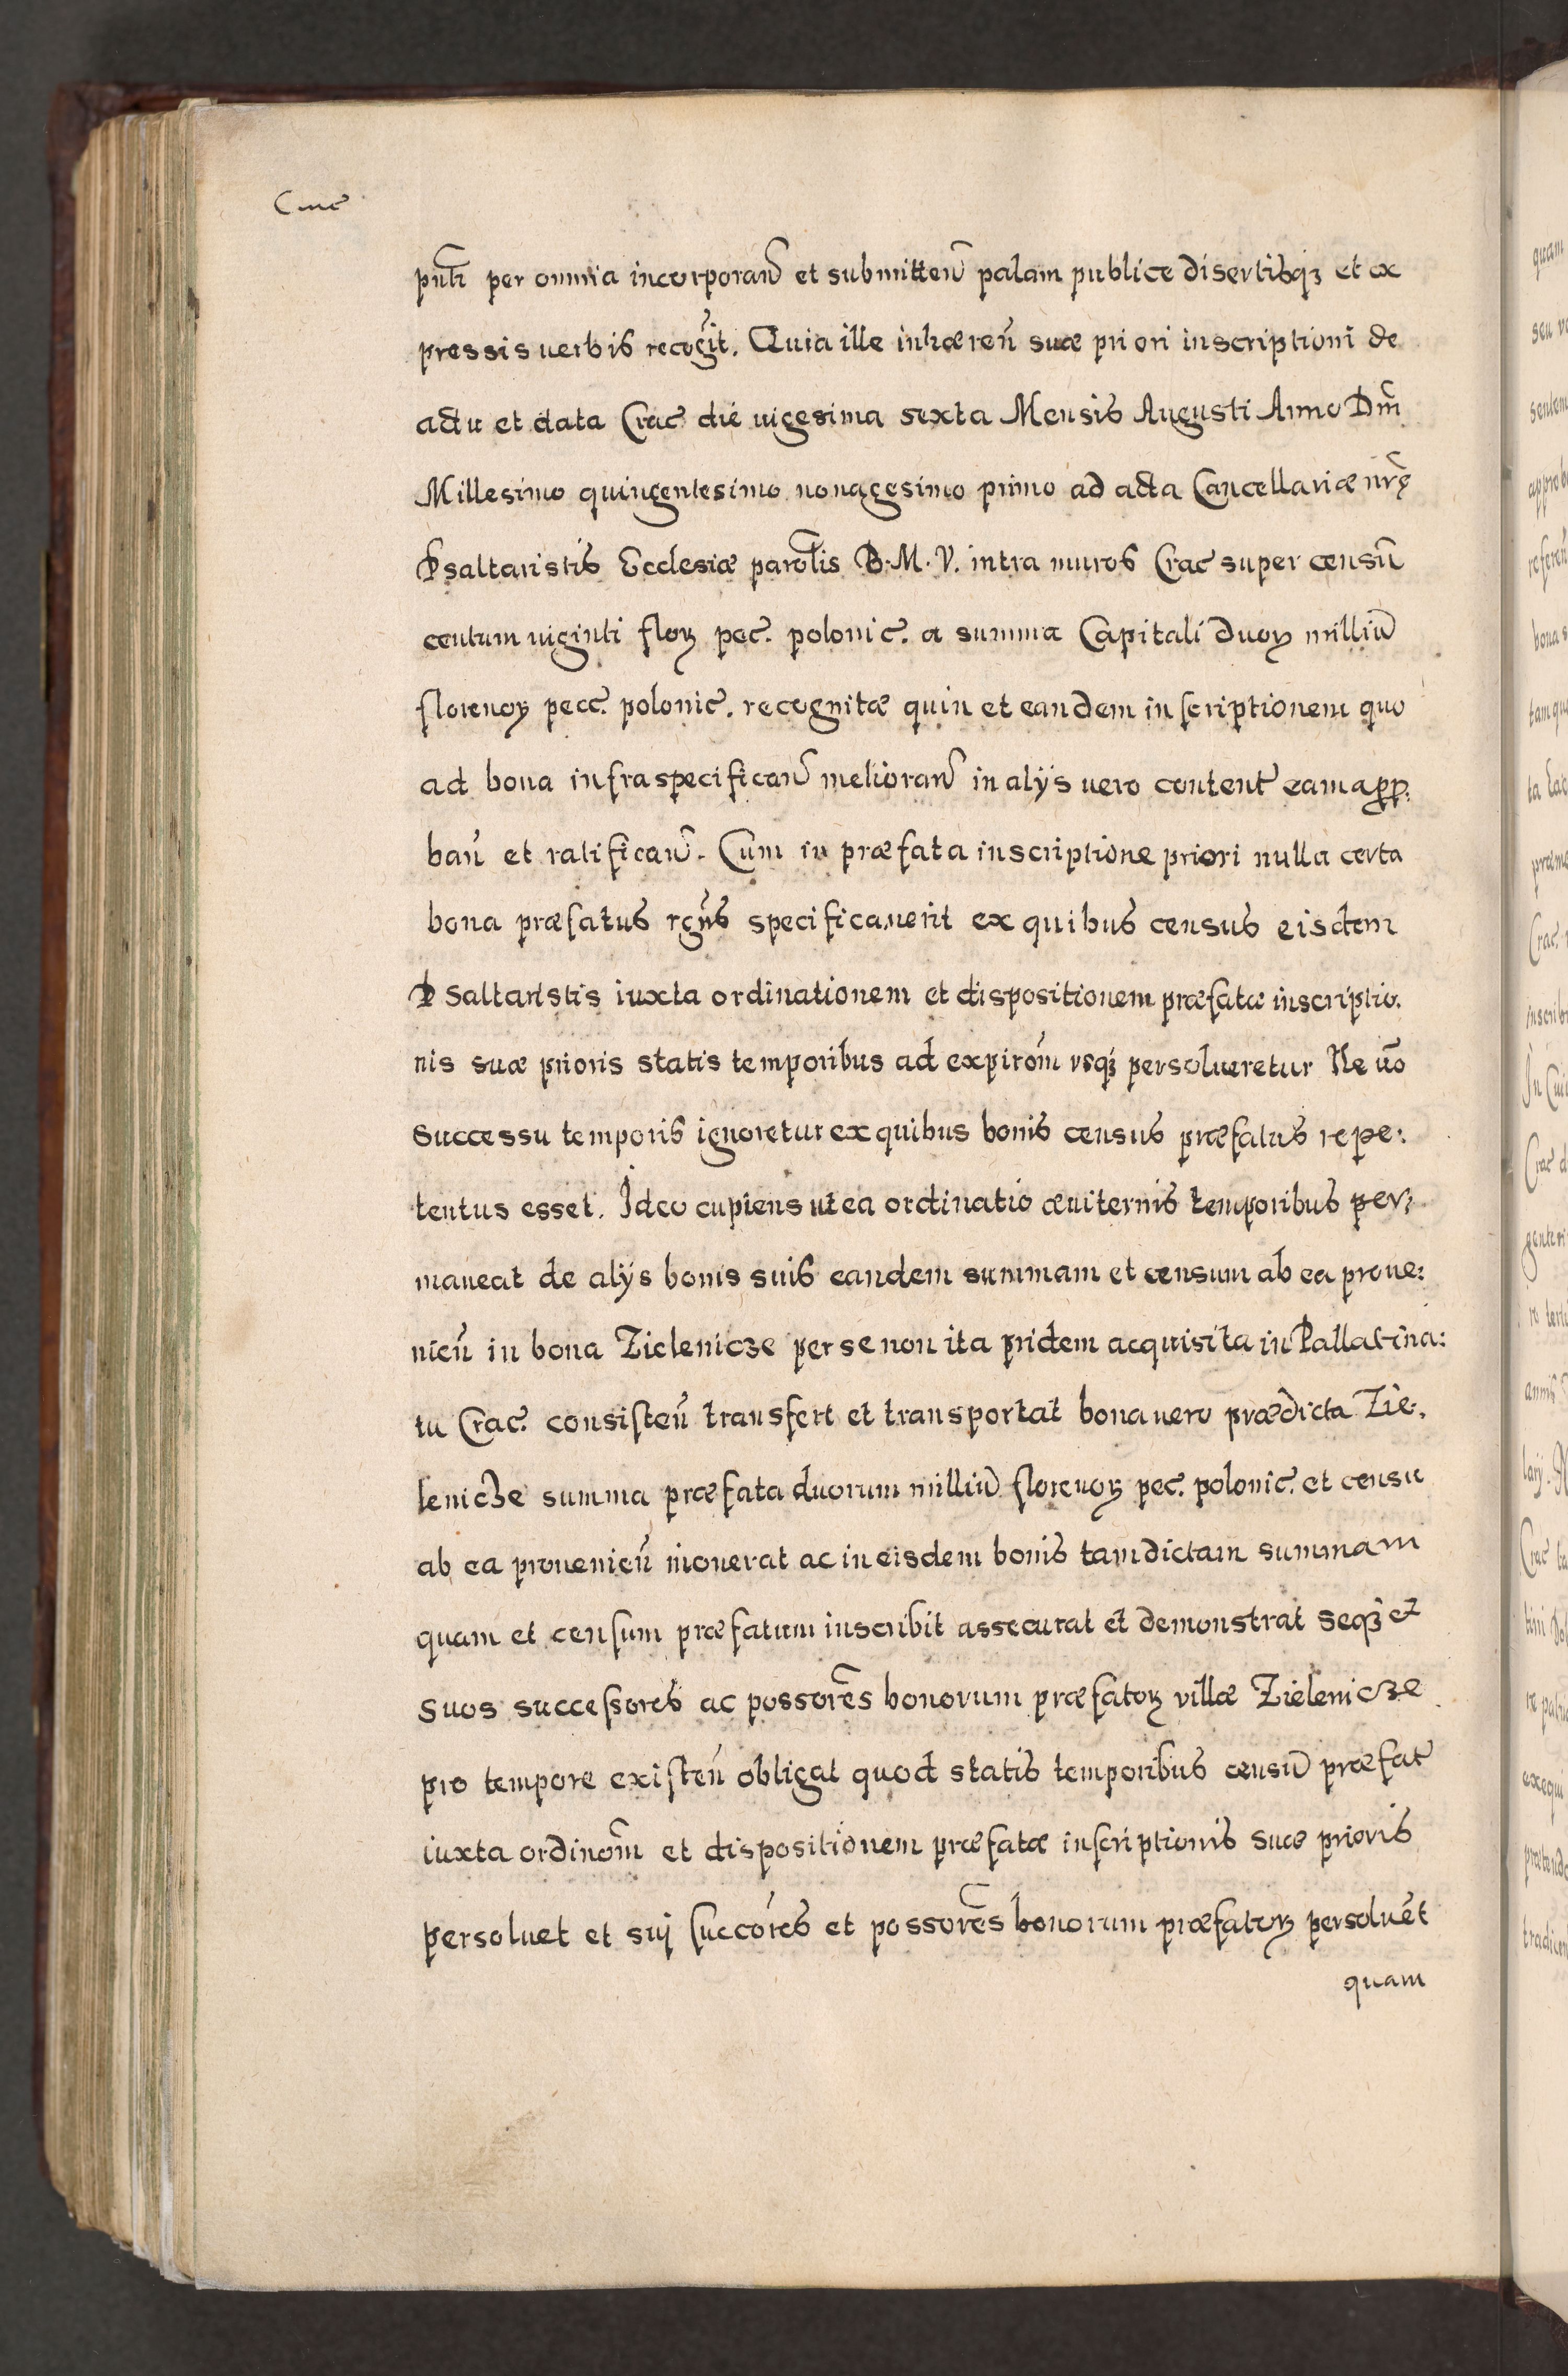 pñti per omnia incorporan̄ et submitten̄ palam publice disertisqȝ et ex
pressis uerbis recog̃it. Quia ille inhæren̄ suæ priori inscriptioni de
actu et data Crac̃ die uigesima sexta Mensis Augusti Anno Dm̃
Millesimo quingentesimo nonagesimo primo ad acta Cancellariæ nr̃ę
Psaltaristis Ecclesiæ paroĩlis B. M. V. intra muros Crac̃ super censũ
centum uiginti floꝝ pec̃. polonic̃. a summa Capitali duoꝝ milliũ
florenoꝝ pecc̃. polonic̃. recognitæ quin et eandem inſcriptionem quo
ad bona infraspecifican̄ melioran̄ in alÿs uero content̃ eam aꝑꝓ:
ban̄ et ratifican̄. Cum in præfata inscriptione priori nulla certa
bona præfatus rgñs specificauerit ex quibus census eisdem
Psaltaristis iuxta ordinationem et dispositionem præfatæ inscriptio.
nis suæ prioris statis temporibus ad expirõm vsqȝ persolueretur Ne ũo
Successu temporis ignoretur ex quibus bonis census præfatus repe:
tentus esset. Ideo cupiens ut ea ordinatio æuiternis temporibus per:
maneat de alÿs bonis suis eandem summam et censum ab ea proue:
nien̄ in bona Zielenicze per se non ita pridem acquisita in Pallatina:
tu Crac̃. consiſten̄ transfert et transportat bona uero prædicta Zie.
lenicze summa præfata duorum milliũ florenoꝝ pec̃. polonic̃. et censu
ab ea prouenien̄ inonerat ac in eisdem bonis tam dictam summam
quam et cenſum præfatum inscribit assecurat et demonstrat seqȝ et
suos succeſsores ac possorẽs bonorum præfatoꝝ villæ Zielenicze
pro tempore exiſten̄ obligat quod statis temporibus censũ præfat̃
iuxta ordinõm et dispositionem præfatæ inſcriptionis suæ prioris
persoluet et suj ſuccõres et possorẽs bonorum præfatoꝝ persoluẽt
quam